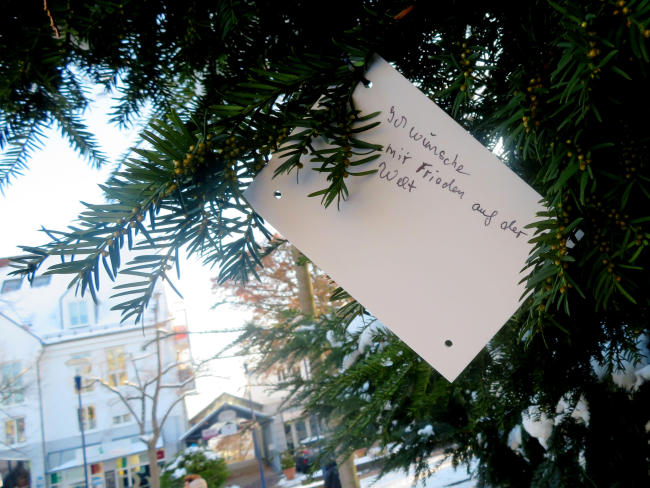 Ich wünsche
mir Frieden auf der
Welt